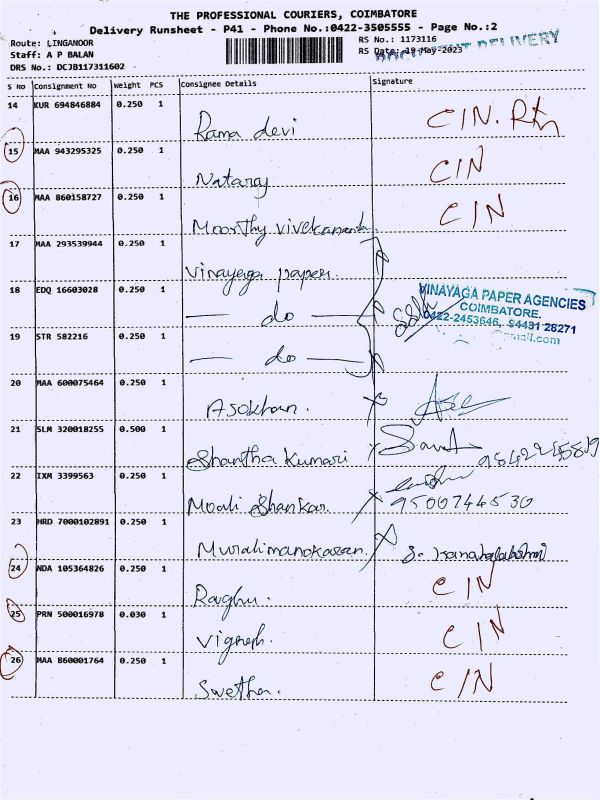 THE PROFESSIONAL COURIERS, COIMBATORE
Delivery Runsheet - P41 - Phone No.:0422-3505555 - Page No.:2
Route: LINGANOOR
Staff: A P BALAN
DRS No.: DCJB117311602
RS No.: 1173116
RS Date: 19-May-2023
DELIVERY
S No Consignment No Weight PCS Consignee Details Signature
14 KUR 694846884 0.250 1 Rama devi C/N. Rtn
15 MAA 943295325 0.250 1 Nataraj C/N
16 MAA 860158727 0.250 1 Moorthy vivekananda C/N
17 MAA 293539944 0.250 1 Vinayaga paper.
18 EDQ 16603028 0.250 1 — do —
VINAYAGA PAPER AGENCIES
COIMBATORE.
0422-2453646, 94431 28271
@gmail.com
19 STR 582216 0.250 1 — do —
20 MAA 600075464 0.250 1 Asokhan.
21 SLM 320018255 0.500 1 Shantha Kumari
22 IXM 3399563 0.250 1 Moali Shankar. 9500744530
23 HRD 7000102891 0.250 1 Muralimanokaran.
24 NDA 105364826 0.250 1 Raghu. C/N
25 PRN 500016978 0.030 1 Vignesh. C/N
26 MAA 860001764 0.250 1 Swetha. C/N